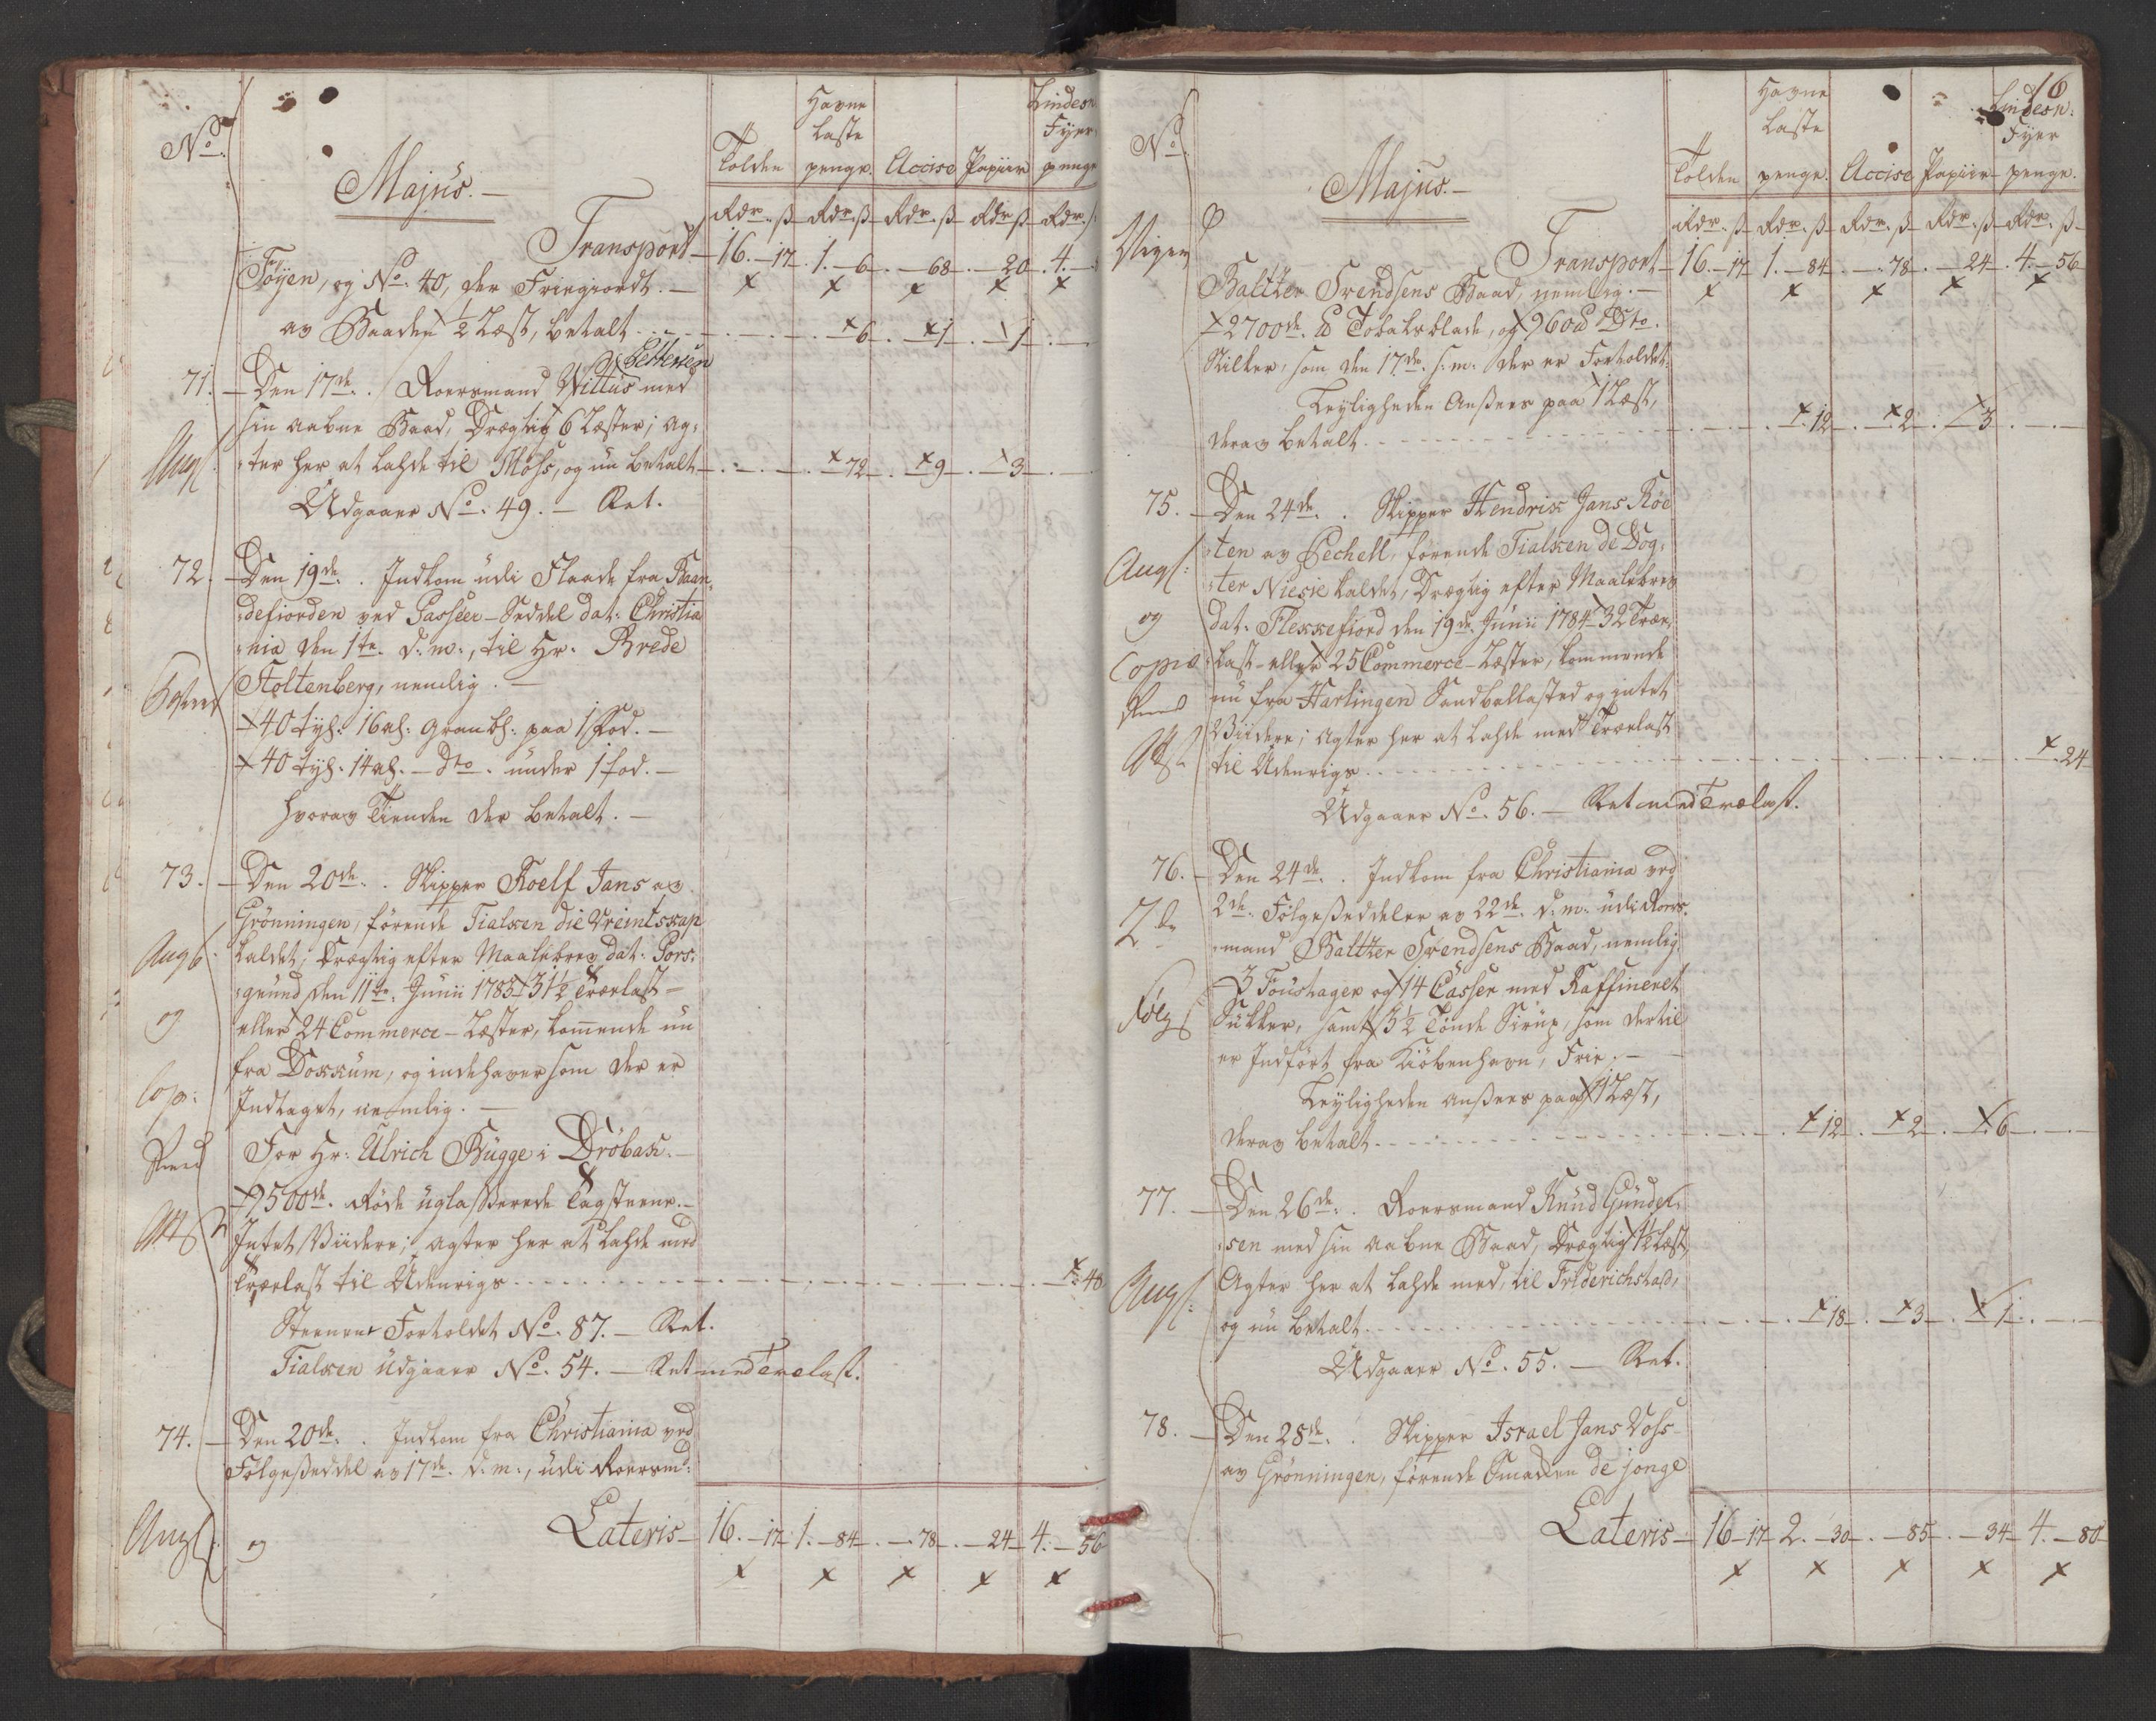 No.
Majus.
Tolden
Havne
Laste
penge.
Accise
Papiir
Lindesn
Fyer
penge
Rdr. ß Rdr. ß Rdr. ß Rdr ß Rdr.
Transport 16.-17. 1.-6. -68. -20. 4.-
Føyen, og No. 40, der Friegiordt.-
av Baaden ½ Læst, betalt - - - 6. 1. 1.
Pettersen
71. Den 17de. Roersmand Vittus med
sin aabne Baad, Drægtig 6 Læster; ag:
Ang:
:ter her at lahde til Mohs, og nu betalt - 72. 9. 3
Udgaaer No. 49. - Ret.
72. Den 19de. Indkom udi Flaade fra Saan
:defiorden ved Passeer-Seddel dat: Christia
:nia den 1te. d: m:, til Hr. Brede
Stoltenberg, nemlig.-
40 tyl: 16 al: Granbl: paa 1 Fod.-
40 tyl: 14 al. - Dto. under 1 fod.-
hvorav Tienden der betalt.-
73. Den 20de. Skipper Roelf Jans av
Grønningen, førende Tialken die Vreintskap
Ang:
kaldet; Drægtig efter Maalebrev dat: Pors:
:grund den 11te. Junii 1783 31½ Trælast-
og
eller 24 Commerce-Læster, kommende nu
fra Dokkum, og indehaver som der er
Cop:
Indtaget, nemlig.-
For Hr: Ulrich Bugge i Drøbak.-
9500de. Røde uglasserede Tagsteene.-
Att:
Intet Viidere; agter her at lahde med
Trælast til Udenrigs - - - 48
Steenene Fortoldet No. 87. - Ret.
Tialken Udgaaer No. 54. - Ret med Trælast.
74. Den 20de. Indkom fra Christiania ved
Følgeseddel av 17de. d: m:, udi Roersmd:
Ang:
og
Lateris 16.-17 1.-84. -78. -24 4.-56
16
No.
Majus.
Tolden
Havne
Laste
penge.
Accise
Papiir
Lindesn:
Fyer
penge.
Rdr. ß Rdr. ß Rdr. ß Rdr. ß Rdr. ß
Transport 16.-17 1.-84. -78. -24. 4.-56
Baltzer Svendsens Baad, nemlig.-
2700de. ℔ Tobaksblade, og 960 ℔ Dto.
Stilker, som den 17de. s: m: der er Fortoldet.
Leyligheden Ansees paa 1 Læst,
derav betalt - - - 12. 2. 3.
75. Den 24de. Skipper Hendrik Jans Koe
:ten av Pechell, førende Tialken de Dog:
Ang:
:ter Niesie kaldet, Drægtig efter Maalebrev
og
dat: Flekkefiord den 19de Junii 1784 32 Træ:
Copie
:last- eller 25 Commerce-Læster, kommende
nu fra Harlingen Sandballasted og intet
Viidere; agter her at lahde med Trælast
Att:
til Udenrigs - - - 24
Udgaaer No. 56. - Ret med Trælast.
76. Den 24de. Indkom fra Christiania ved
2de
2de. Følgeseddeler av 22de. d: m: udi Roers:
:mand Baltzer Svendsens Baad, nemlig.
3 Foustager og 14 Casser med Raffineret
Følgs
Sukker, samt 3½ Tønde Sirup, som dertil
er Indført fra Kiøbenhavn, Frie.-
Leyligheden ansees paa 1 Læst,
derav betalt - - - 12. 2. 6
77. Den 26de. Roersmand Knud Gunder:
:sen med sin aabne Baad, Drægtig 1½ Læst,
Ang:
Agter her at lahde med, til Friderichstad,
og nu betalt - - - 18. 3. 1.
Udgaaer No. 55. - Ret.
78. Den 28de. Skipper Israel Jans Vohs
av Grønningen, førende Smakken de jonge
Lateris 16-17 2.-30. -85. -34 4.-80